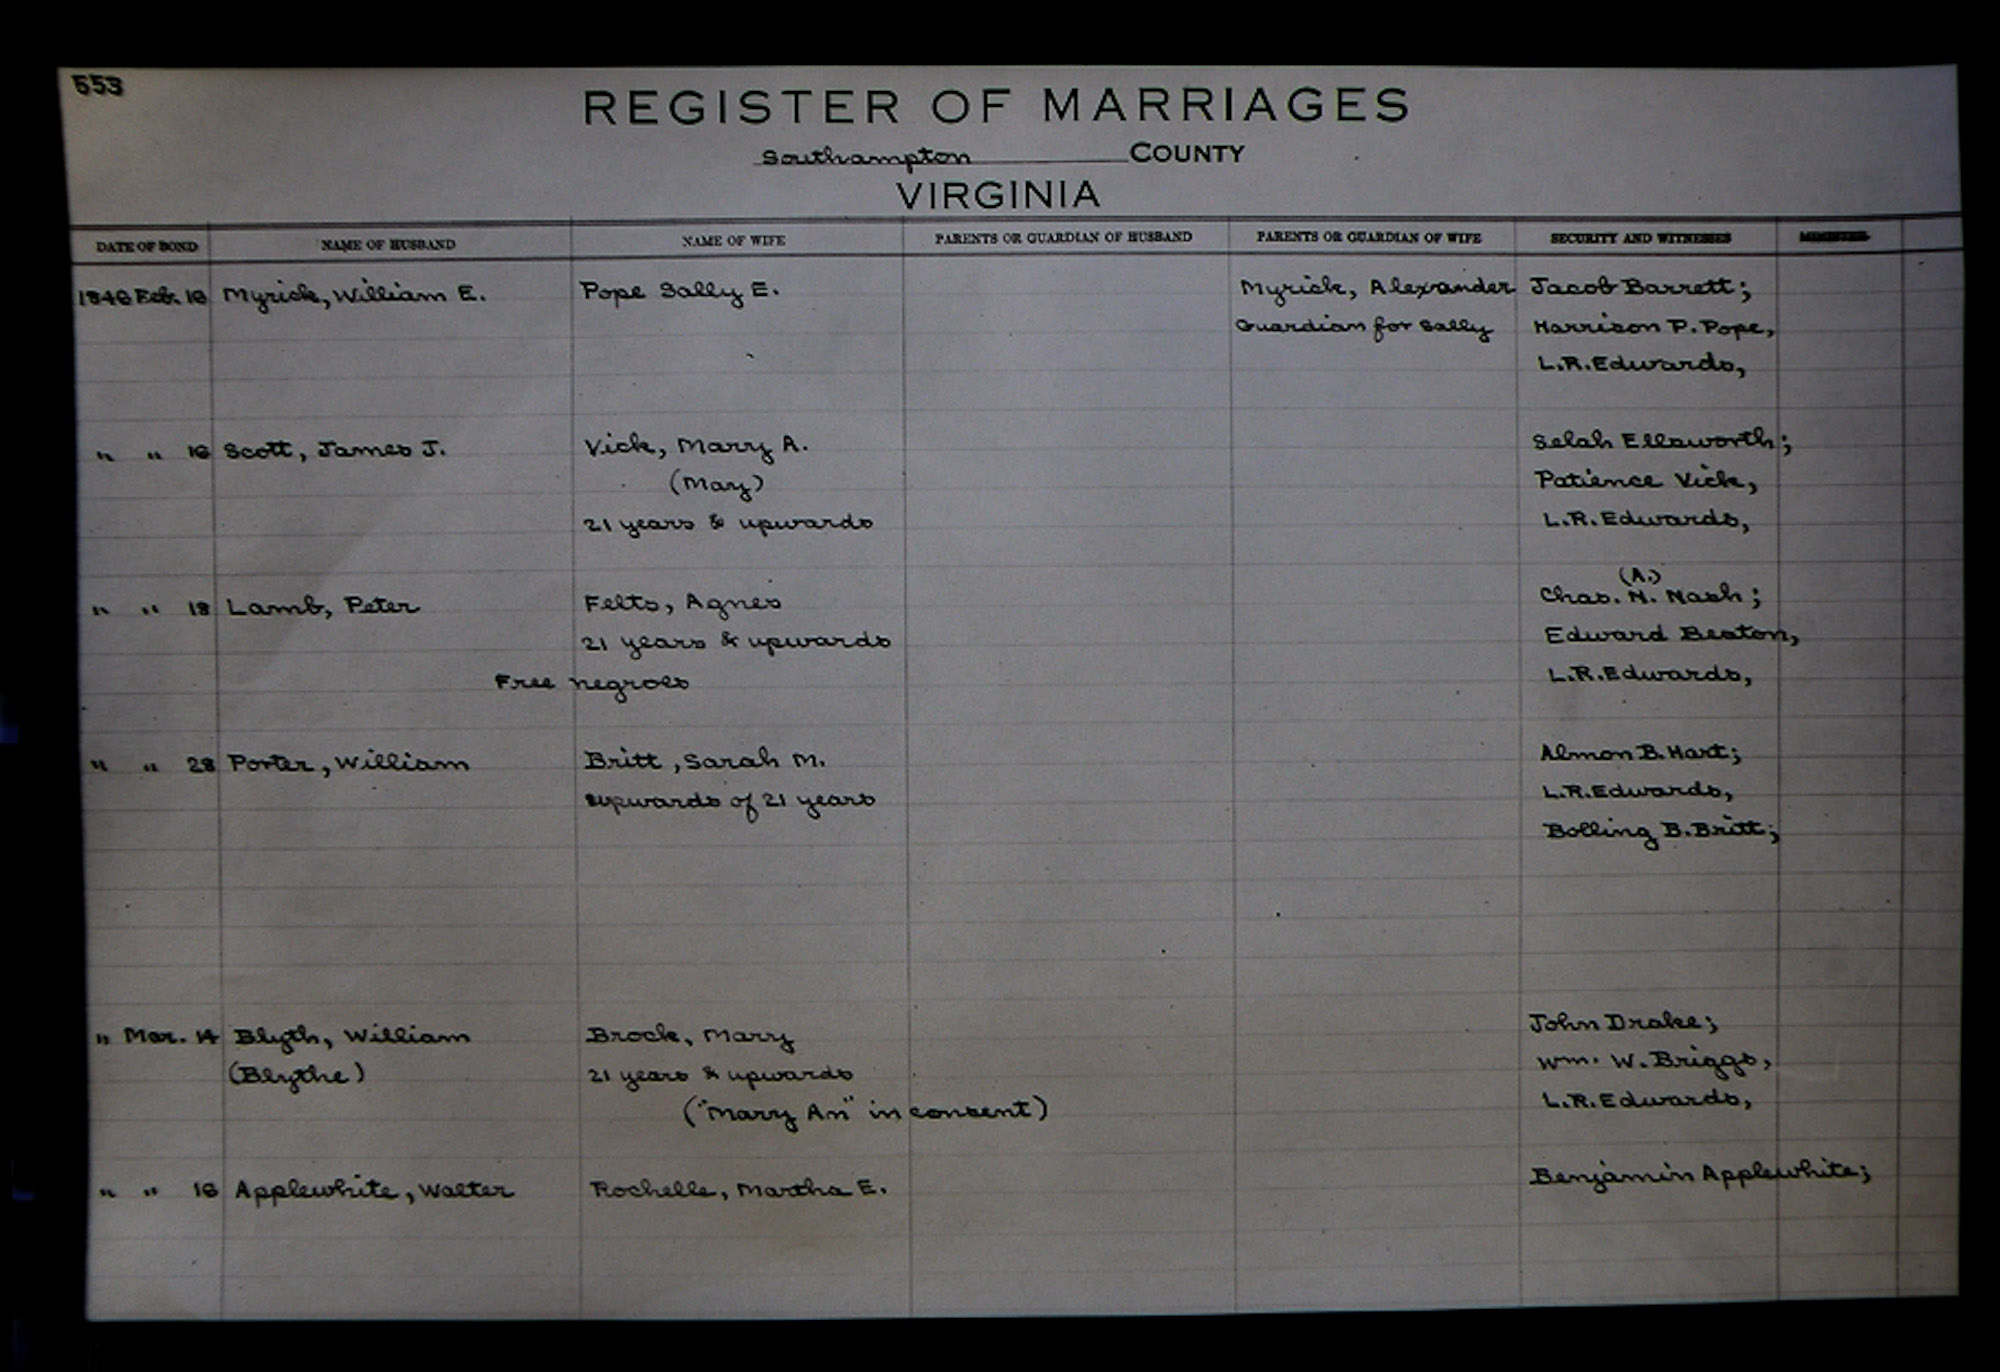 553
REGISTER OF MARRIAGES
Southampton COUNTY
VIRGINIA
DATE OF BOND NAME OF HUSBAND NAME OF WIFE PARENTS OR GUARDIAN OF HUSBAND PARENTS OR GUARDIAN OF WIFE SECURITY AND WITNESSES MINISTER
1846 Feb. 16 Myrick, William E. Pope Sally E. Myrick, Alexander Jacob Barrett;
Guardian for Sally Harrison P. Pope,
L.R.Edwards,
" " 16 Scott, James J. Vick, Mary A. Selah Ellsworth;
(May) Patience Vick,
21 years & upwards L.R.Edwards,
(A.)
" " 18 Lamb, Peter Felts, Agnes Chas. N. Nash;
21 years & upwards Edward Beaton,
Free negroes L.R.Edwards,
" " 28 Porter, William Britt, Sarah M. Almon B. Hart;
upwards of 21 years L.R.Edwards,
Bolling B. Britt;
" Mar. 14 Blyth, William Brock, Mary John Drake;
(Blythe) 21 years & upwards Wm. W. Briggs,
("Mary An" in consent) L.R.Edwards,
" " 16 Applewhite, Walter Rochelle, Martha E. Benjamin Applewhite;